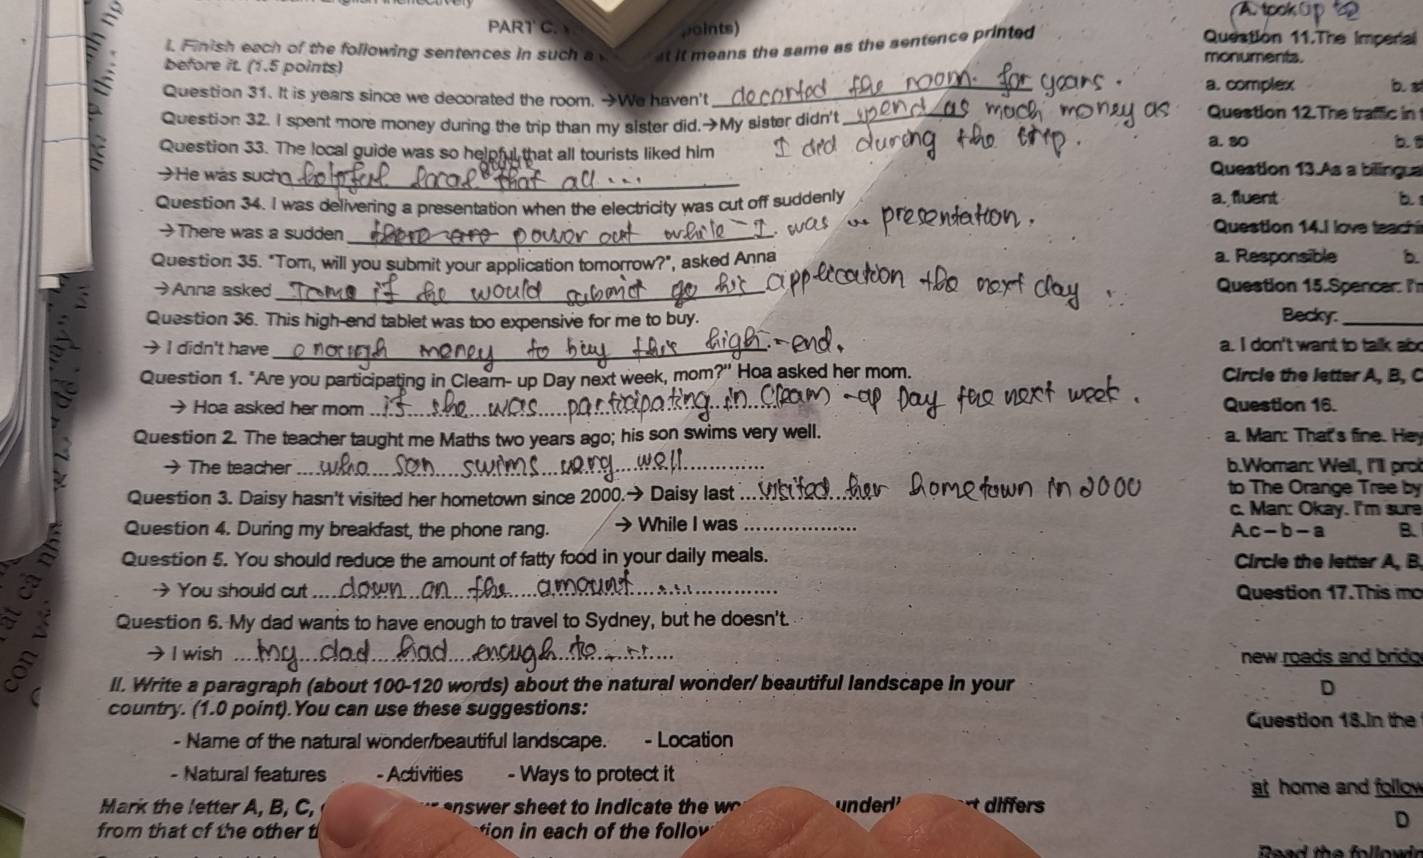 PART C. points)
I. Finish each of the following sentences in such a at it means the same as the sentence printed
before it. (1.5 points)
Question 31. It is years since we decorated the room. →We haven't decorted the room. for years.
Question 32. I spent more money during the trip than my sister did.→My sister didn't spend as much money as
I did during the trip.
Question 33. The local guide was so helpful that all tourists liked him
→He was such a helpful local guide that all ...
Question 34. I was delivering a presentation when the electricity was cut off suddenly
→There was a sudden there are power out while I was presentation.
Question 35. "Tom, will you submit your application tomorrow?", asked Anna
→Anna asked if he would submit his application the next day
Question 36. This high-end tablet was too expensive for me to buy.
→ I didn't have enough money to buy this high-end.
Question 1. "Are you participating in Clearn- up Day next week, mom?" Hoa asked her mom.
→ Hoa asked her mom if she was participating in Clearn-up Day the next week.
Question 2. The teacher taught me Maths two years ago; his son swims very well.
→ The teacher who son swims very well
Question 3. Daisy hasn't visited her hometown since 2000.→ Daisy last visited her hometown in 2000
Question 4. During my breakfast, the phone rang. → While I was ..................
Question 5. You should reduce the amount of fatty food in your daily meals.
→ You should cut down on the amount ....
Question 6. My dad wants to have enough to travel to Sydney, but he doesn't.
→ I wish my dad had enough to ....
II. Write a paragraph (about 100-120 words) about the natural wonder/ beautiful landscape in your
country. (1.0 point).You can use these suggestions:
- Name of the natural wonder/beautiful landscape. - Location
- Natural features - Activities - Ways to protect it
Mark the letter A, B, C, answer sheet to indicate the differs
from that of the other in each of the
A. took up to
Question 11.The Imperial
monuments.
a. complex b.
Question 12.The traffic in
a. so b.
Question 13.As a
a. fluent b.
Question 14.I love
a. Responsible b.
Question 15.Spencer: I'm
Becky: ________
a. I don't want to talk
Circle the letter A, B, C
Question 16.
a. Man: That's fine. Hey
b.Woman: Well, I'll
to The Orange Tree by
c. Man: Okay. I'm sure
A.c – b – a B.
Circle the letter A, B,
Question 17.This
new roads and
D
Question 18.In the
at home and
D
Read the